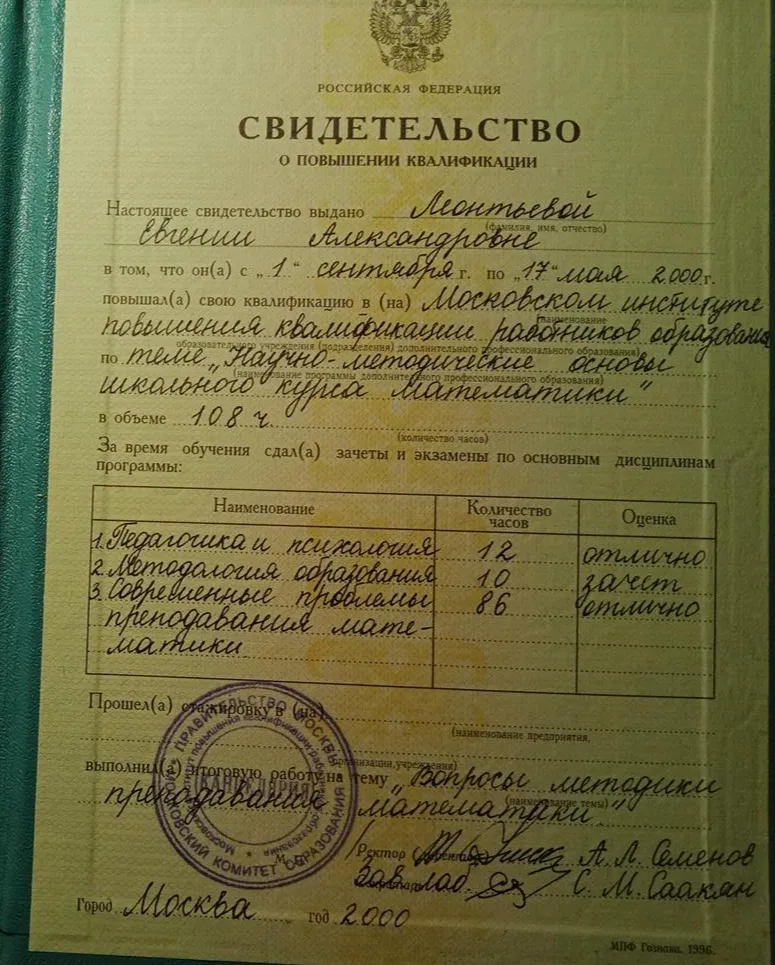 РОССИЙСКАЯ ФЕДЕРАЦИЯ
СВИДЕТЕЛЬСТВО
О ПОВЫШЕНИИ КВАЛИФИКАЦИИ
Настоящее свидетельство выдано Леонтьевой
(фамилия, имя, отчество)
Евгении Александровне
в том, что он(а) с „1“ сентября г. по „17“ мая 2000 г.
повышал(а) свою квалификацию в (на) Московском институте
(наименование
повышения квалификации работников образования
образовательного учреждения (подразделения) дополнительного профессионального образования)
по теме „Научно-методические основы
(наименование программы дополнительного профессионального образования)
школьного курса математики“
в объеме 108 ч.
(количество часов)
За время обучения сдал(а) зачеты и экзамены по основным дисциплинам
программы:
Наименование Количество часов Оценка
1. Педагогика и психология 12 отлично
2. Методология образования 10 зачет
3. Современные проблемы 86 отлично
преподавания мате-
матики
Прошел(а) стажировку в (на)
(наименование предприятия,
организации, учреждения)
выполнил(а) итоговую работу на тему „Вопросы методики
(наименование темы)
преподавания математики“
ПРАВИТЕЛЬСТВО МОСКВЫ
МОСКОВСКИЙ КОМИТЕТ ОБРАЗОВАНИЯ
Московский институт повышения квалификации работников образования
КАНЦЕЛЯРИЯ
Ректор А. Л. Семенов
Зав лаб. С. М. Саакян
Город Москва год 2000
МПФ Гознака. 1996.